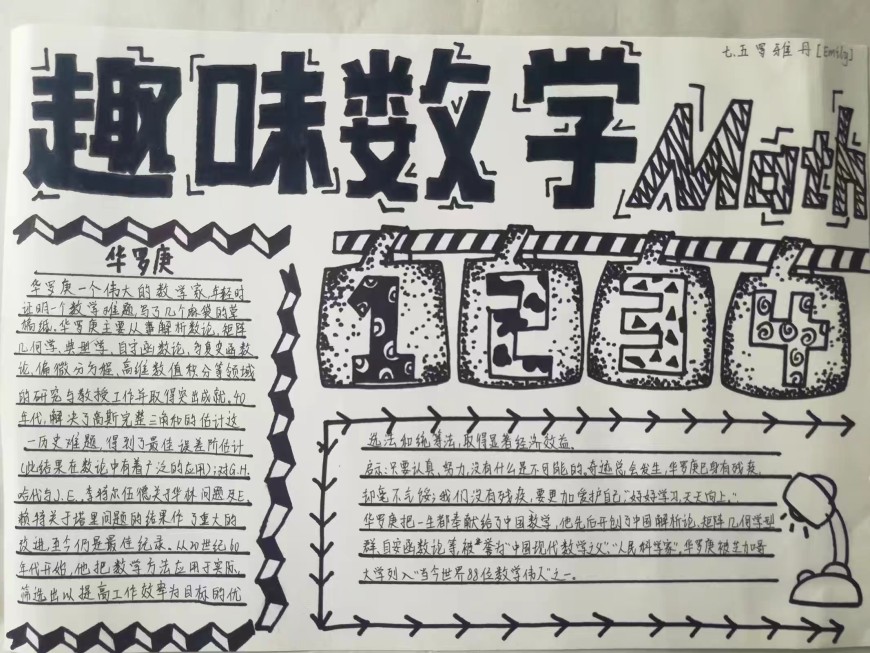 七.五 罗雅丹[Emily]
趣味数学 Math
华罗庚
华罗庚一个伟大的数学家,年轻时
证明一个数学难题,写了几个麻袋的草
稿纸,华罗庚主要从事解析数论,矩阵
几何学,典型学,自守函数论,多复变函数
论,偏微分方程、高维数值积分等领域
的研究与教授工作并取得突出成就,40
年代,解决了高斯完整三角和的估计这
一历史难题,得到了最佳误差阶估计
(此结果在数论中有着广泛的应用);对G.H.
哈代与J.E.李特尔伍德关于华林问题及E.
赖特关于塔里问题的结果作了重大的
改进,至今仍是最佳纪录。从20世纪60
年代开始,他把数学方法应用于实际,
筛选出以提高工作效率为目标的优
1 2 3 4
选法和统筹法,取得显著经济效益.
启示:只要认真、努力,没有什么是不可能的,奇迹总会发生,华罗庚已身有残疾,
却毫不气馁;我们没有残疾,要更加爱护自己,"好好学习,天天向上".
华罗庚把一生都奉献给了中国数学,他先后开创了中国解析论,矩阵几何学型
群,自安函数论等,被誉为"中国现代数学之父""人民科学家",华罗庚被芝加哥
大学列入"当今世界88位数学伟人"之一.